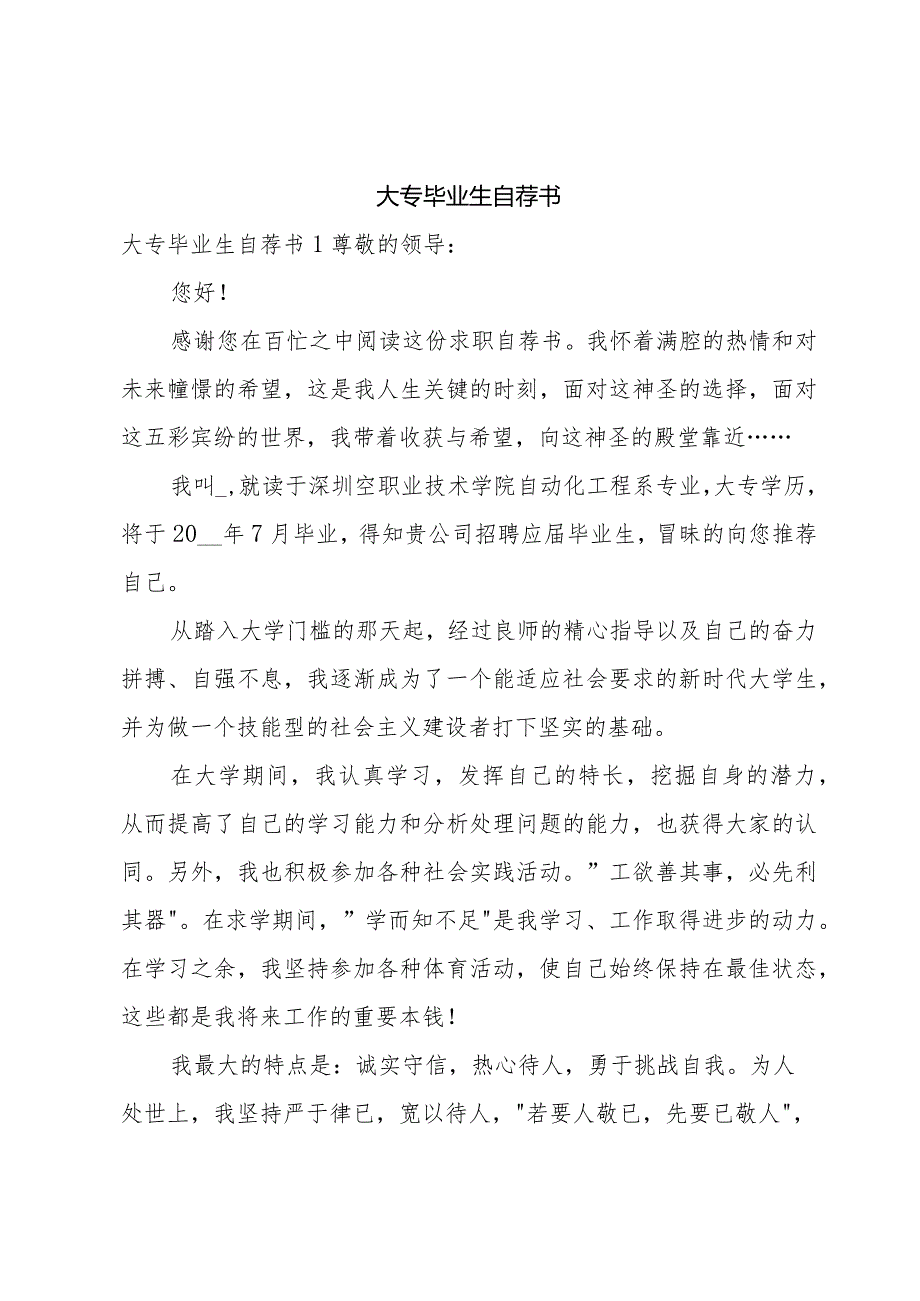 大专毕业生自荐书
大专毕业生自荐书1尊敬的领导：
您好！
感谢您在百忙之中阅读这份求职自荐书。我怀着满腔的热情和对
未来幢憬的希望，这是我人生关键的时刻，面对这神圣的选择，面对
这五彩宾纷的世界，我带着收获与希望，向这神圣的殿堂靠近……
我叫_,就读于深圳空职业技术学院自动化工程系专业，大专学历，
将于20__年7月毕业，得知贵公司招聘应届毕业生，冒昧的向您推荐
自己。
从踏入大学门槛的那天起，经过良师的精心指导以及自己的奋力
拼搏、自强不息，我逐渐成为了一个能适应社会要求的新时代大学生，
并为做一个技能型的社会主义建设者打下坚实的基础。
在大学期间，我认真学习，发挥自己的特长，挖掘自身的潜力，
从而提高了自己的学习能力和分析处理问题的能力，也获得大家的认
同。另外，我也积极参加各种社会实践活动。”工欲善其事，必先利
其器"。在求学期间，”学而知不足"是我学习、工作取得进步的动力。
在学习之余，我坚持参加各种体育活动，使自己始终保持在最佳状态，
这些都是我将来工作的重要本钱！
我最大的特点是：诚实守信，热心待人，勇于挑战自我。为人
处世上，我坚持严于律已，宽以待人，"若要人敬已，先要已敬人"，